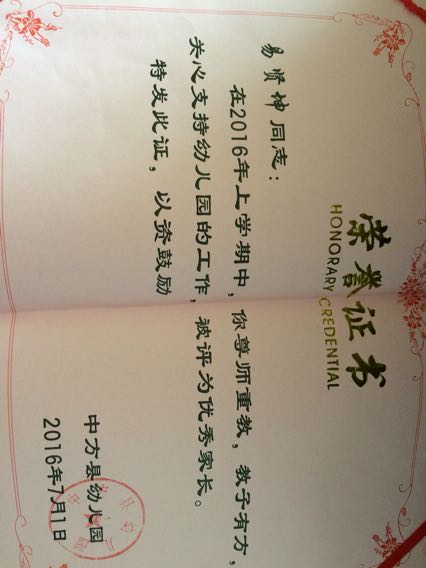 荣誉证书
HONORARY CREDENTIAL
易贤坤同志：
在2016年上学期中，你尊师重教，教子有方，
关心支持幼儿园的工作，被评为优秀家长。
特发此证，以资鼓励
中方县幼儿园
2016年7月1日